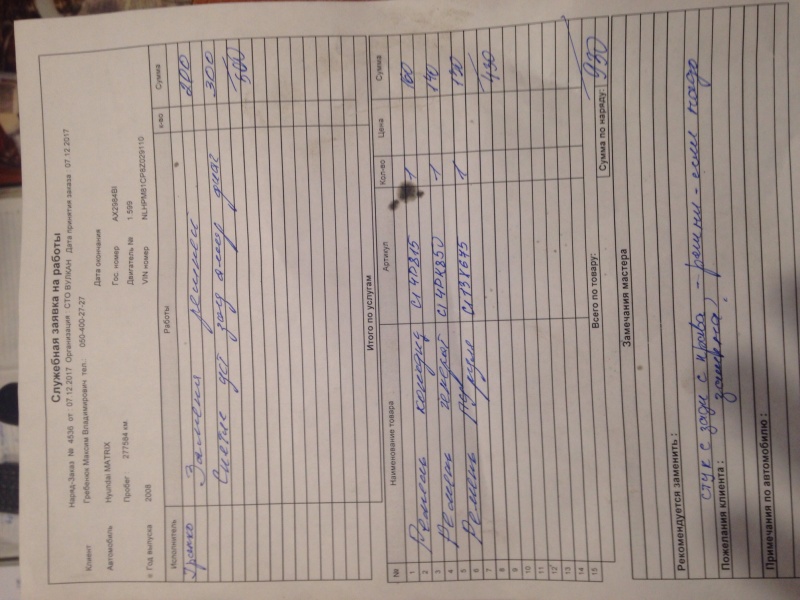 Служебная заявка на работы
Наряд-Заказ № 4536 от 07.12.2017 Организация СТО ВУЛКАН Дата принятия заказа 07.12.2017
Клиент Гребенюк Максим Владимирович тел.: 050-400-27-27 Дата окончания
Автомобиль Hyundai MATRIX Гос. номер AX2984BI
Пробег 277584 км. Двигатель № 1.599
Год выпуска 2008 VIN номер NLHPM81CP8Z029110
Исполнитель Работы к-во Сумма
Замена ремней 200
Снятие уст зад амор диаг 300
500
Итого по услугам
№ Наименование товара Артикул Кол-во Цена Сумма
1 Ремень кондиц 1 160
2 Ремень генерат 4PK850 1 140
3 Ремень 1 130
4
5
6 430
7
8
9
10
11
12
13
14
15
Всего по товару:
Сумма по наряду: 930
Замечания мастера
Рекомендуется заменить:
стук с зади с права - если надо
Пожелания клиента: замена
Примечания по автомобилю: